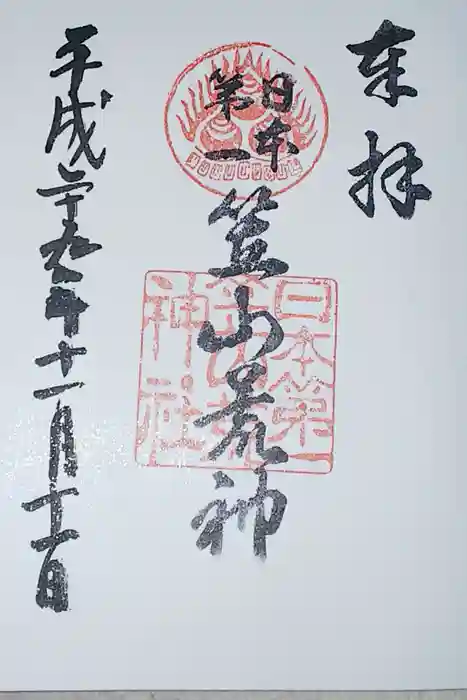 奉拝
日本
第一
笠山荒神
日本第一
笠山荒
神社
平成二十九年十一月十一日